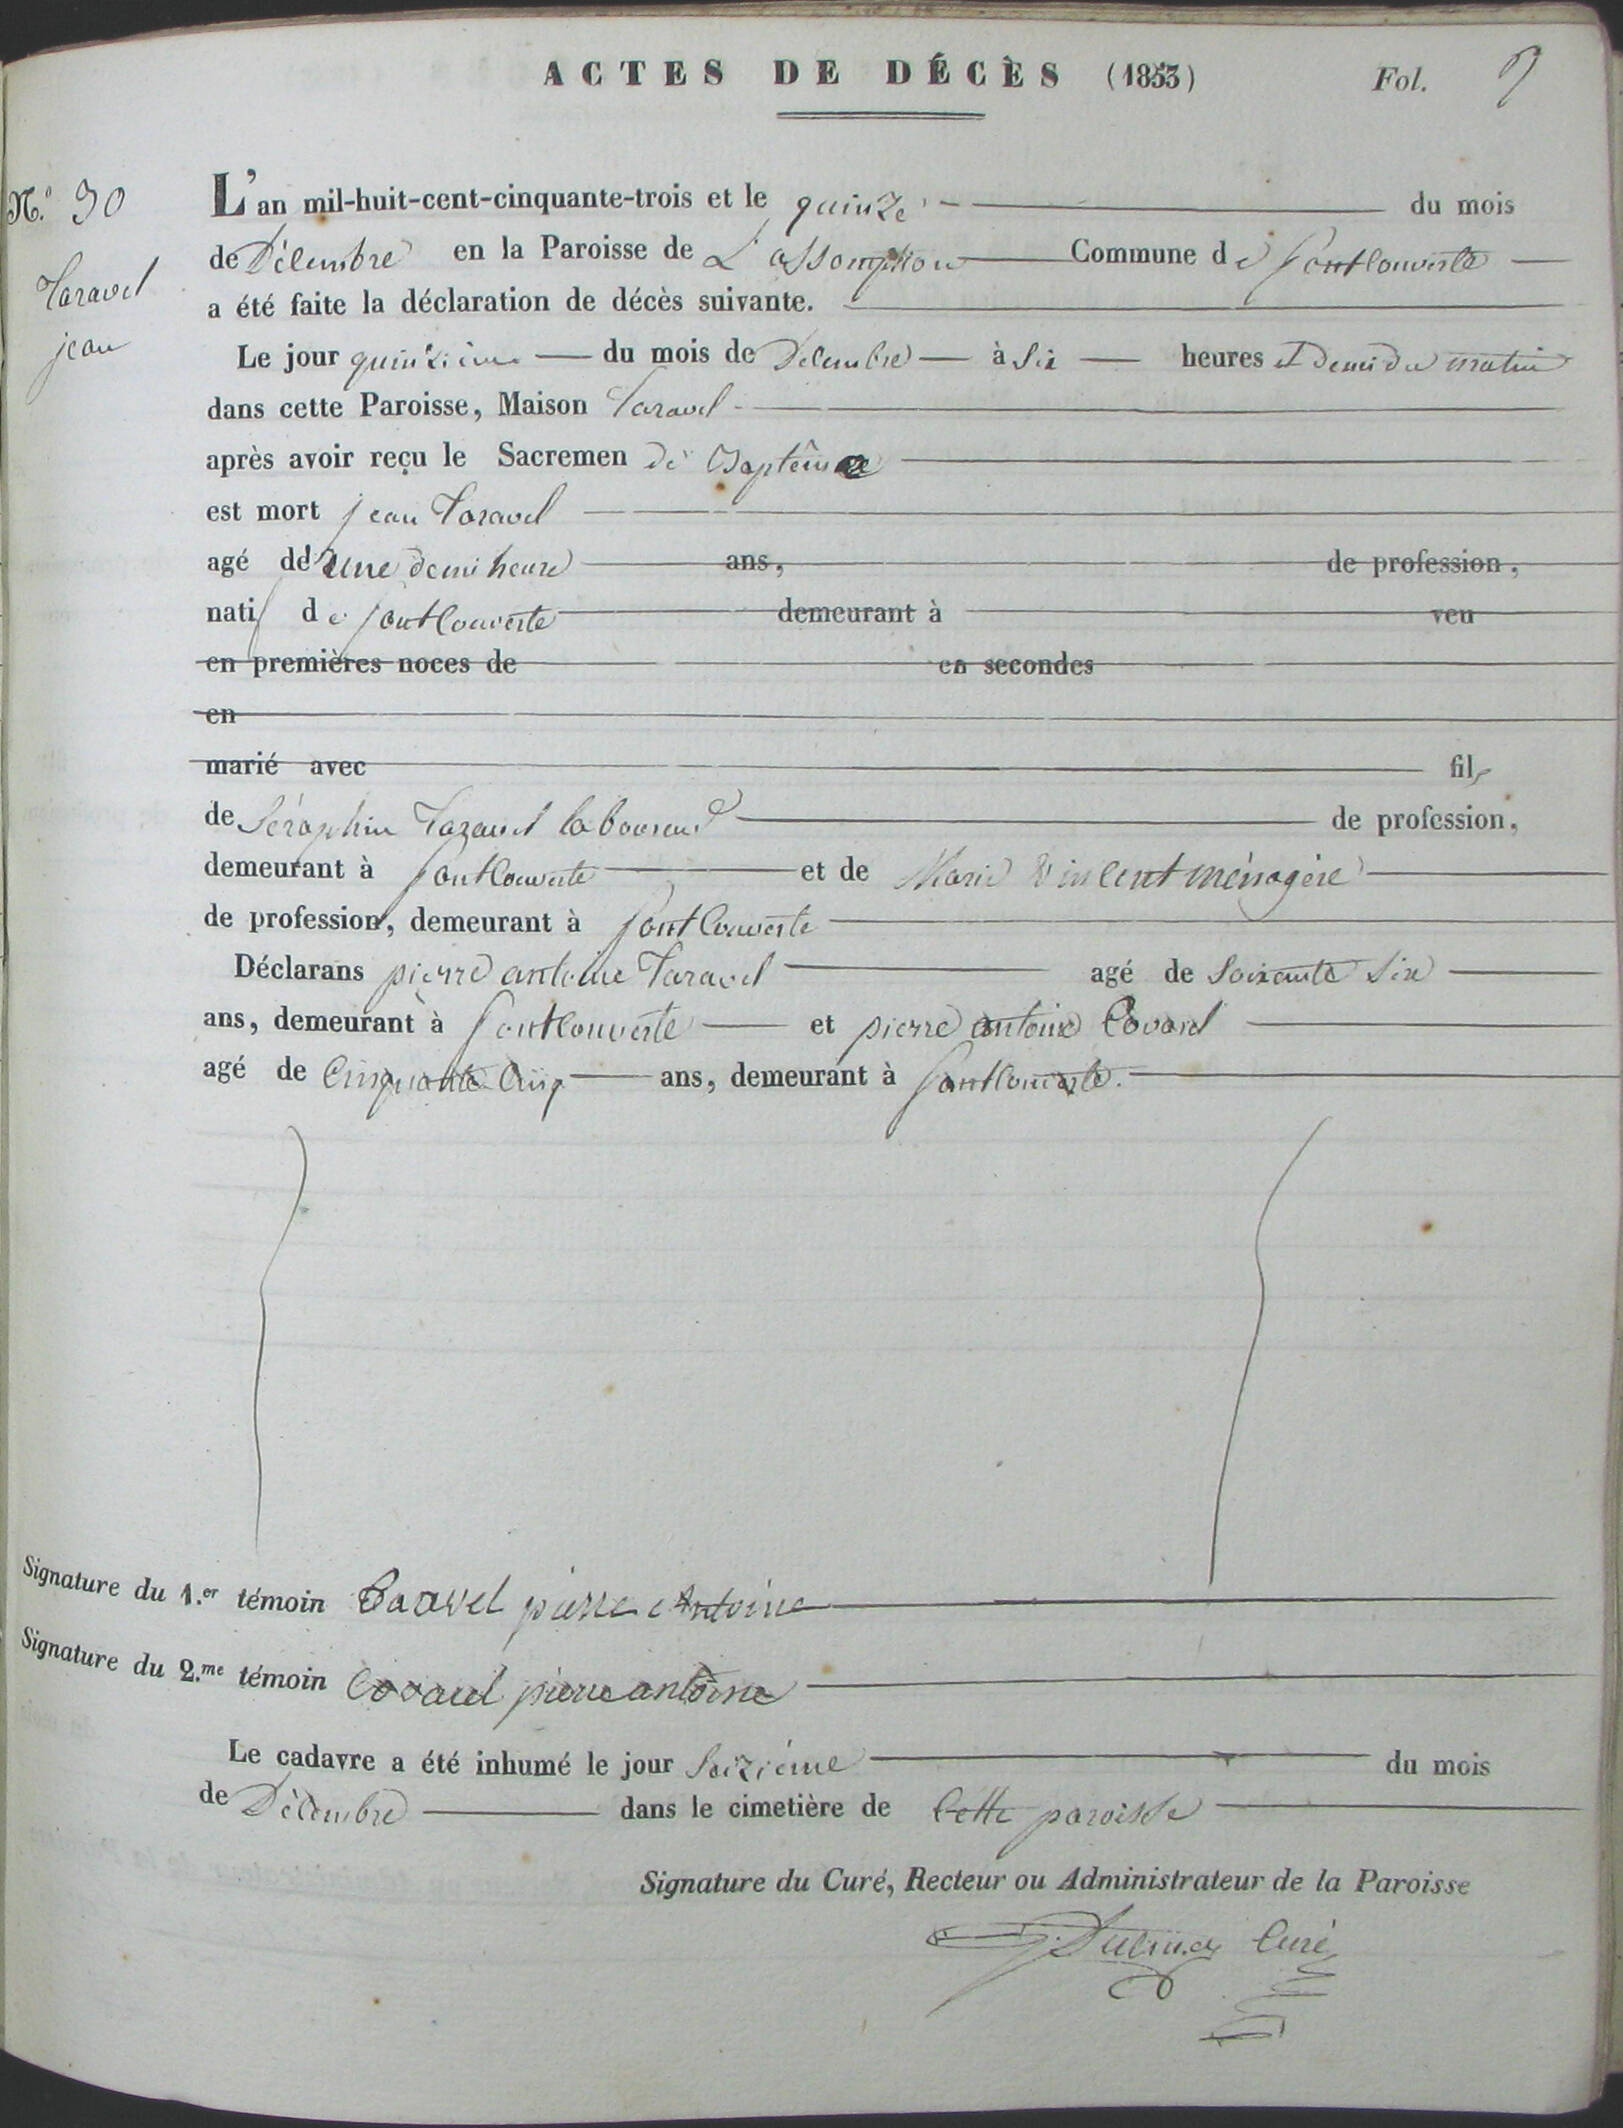 ACTES DE DÉCÈS (1853) Fol. 9
N.º 30 L'an mil-huit-cent-cinquante-trois et le quinze du mois
de Décembre en la Paroisse de L'assomption Commune de fontCouverte
Taravel a été faite la déclaration de décès suivante.
jean Le jour quinzième du mois de Décembre à Six heures et demi du matin
dans cette Paroisse, Maison Taravel
après avoir reçu le Sacremen de Baptême
est mort jean Taravel
agé dd'une demi heure ans, de profession,
natif de fontCouverte demeurant à veu
en premières noces de en secondes
en
marié avec fils
de Séraphin Taravel laboureur de profession,
demeurant à fontCouverte et de Marie Vincent ménagère
de profession, demeurant à fontCouverte
Déclarans pierre antoine Taravel agé de Soixante Six
ans, demeurant à fontCouverte et pierre antoine Covarel
agé de Cinquante Cinq ans, demeurant à fontCouverte.
Signature du 1.er témoin Taravel pierre Antoine
Signature du 2.me témoin Covarel pierre antoine
Le cadavre a été inhumé le jour Seizième du mois
de Décembre dans le cimetière de Cette paroisse
Signature du Curé, Recteur ou Administrateur de la Paroisse
Curé